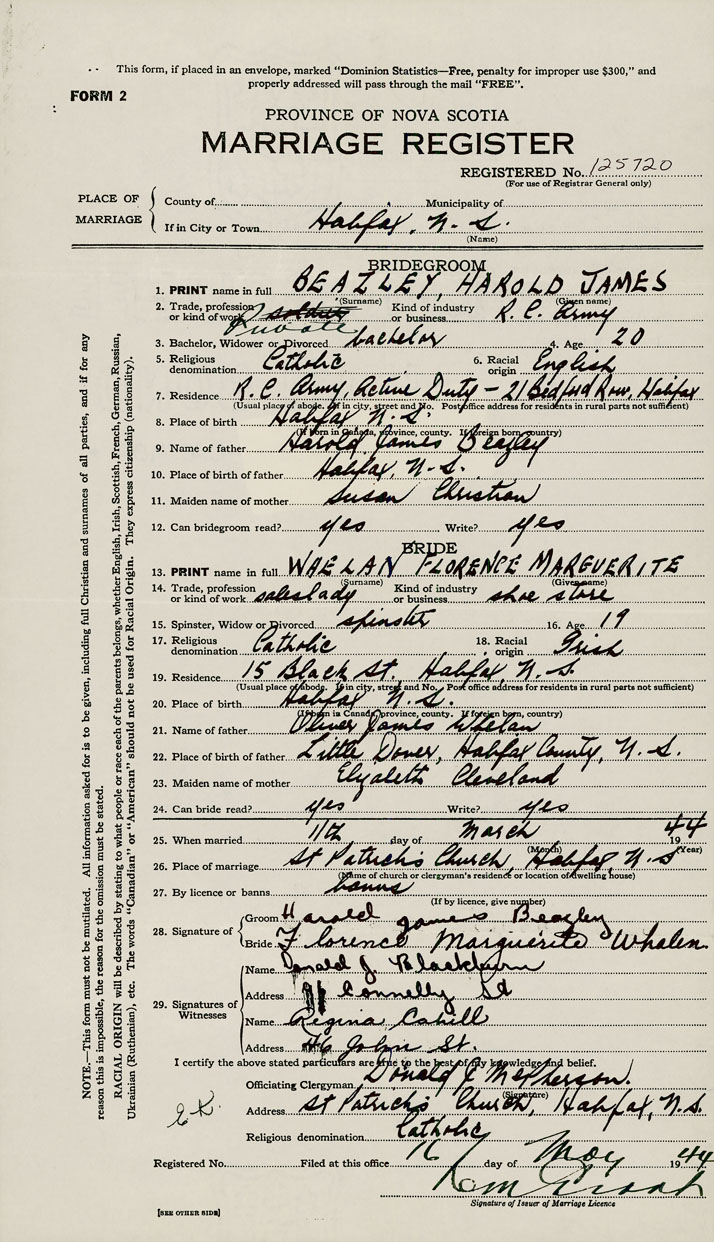 This form, if placed in an envelope, marked "Dominion Statistics—Free, penalty for improper use $300," and
properly addressed will pass through the mail "FREE".
FORM 2
PROVINCE OF NOVA SCOTIA
MARRIAGE REGISTER
REGISTERED No. 125720
(For use of Registrar General only)
PLACE OF MARRIAGE
County of Municipality of
If in City or Town Halifax, N.S.
(Name)
BRIDEGROOM
1. PRINT name in full BEAZLEY, HAROLD JAMES
(Surname) (Given name)
2. Trade, profession or kind of work soldier Private Kind of industry or business R.C. Army
3. Bachelor, Widower or Divorced bachelor 4. Age 20
5. Religious denomination Catholic 6. Racial origin English
7. Residence R.C. Army, Active Duty - 21 Bedford Row, Halifax
(Usual place of abode. If in city, street and No. Post office address for residents in rural parts not sufficient)
8. Place of birth Halifax N.S.
(If born in Canada, province, county. If foreign born, country)
9. Name of father Harold James Beazley
10. Place of birth of father Halifax, N.S.
11. Maiden name of mother Susan Christian
12. Can bridegroom read? yes Write? yes
BRIDE
13. PRINT name in full WHELAN FLORENCE MARGUERITE
(Surname) (Given name)
14. Trade, profession or kind of work saleslady Kind of industry or business shoe store
15. Spinster, Widow or Divorced spinster 16. Age 19
17. Religious denomination Catholic 18. Racial origin Irish
19. Residence 15 Black St, Halifax, N.S.
(Usual place of abode. If in city, street and No. Post office address for residents in rural parts not sufficient)
20. Place of birth Halifax N.S.
(If born in Canada, province, county. If foreign born, country)
21. Name of father Oliver James Whelan
22. Place of birth of father Little Dover, Halifax County, N.S.
23. Maiden name of mother Elyzabeth Cleveland
24. Can bride read? yes Write? yes
25. When married 11th day of March 1944
(Month) (Year)
26. Place of marriage St Patrick's Church, Halifax, N.S
(Name of church or clergyman's residence or location of dwelling house)
27. By licence or banns banns
(If by licence, give number)
28. Signature of
Groom Harold James Beazley
Bride Florence Marguerite Whalen
29. Signatures of Witnesses
Name Donald J. Blackburn
Address Connelly St
Name Regina Cahill
Address 46 John St.
I certify the above stated particulars are true to the best of my knowledge and belief.
Officiating Clergyman Donald J. McPherson.
(Signature)
Address St Patrick's Church, Halifax, N.S.
Religious denomination Catholic
Registered No. Filed at this office 16 day of May 1944
Signature of Issuer of Marriage Licence
[SEE OTHER SIDE]
NOTE.—This form must not be mutilated. All information asked for is to be given, including full Christian and surnames of all parties, and if for any
reason this is impossible, the reason for the omission must be stated.
RACIAL ORIGIN will be described by stating to what people or race each of the parents belongs, whether English, Irish, Scottish, French, German, Russian,
Ukrainian (Ruthenian), etc. The words "Canadian" or "American" should not be used for Racial Origin. They express citizenship (nationality).